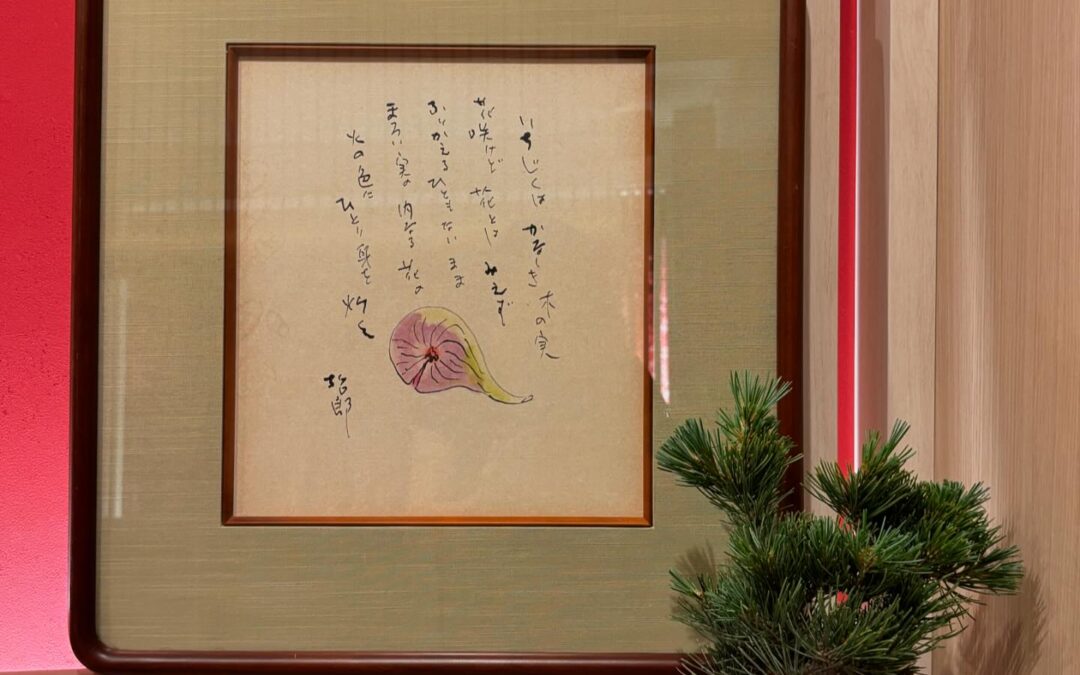 いちじくは かなしき 木の実
花咲けど 花とは みえず
ふりかえるひともないまま
まろい実の 内なる 花の
火の色に
ひとり身を 灼く